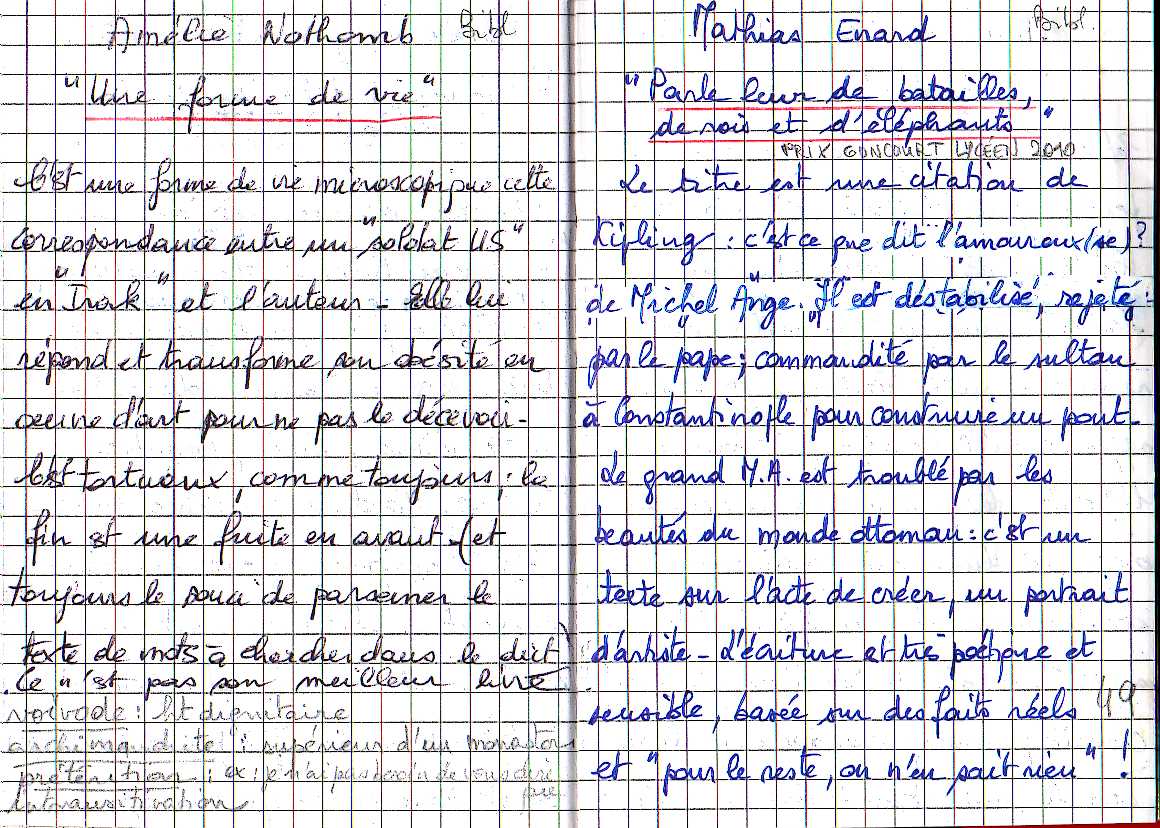 Amélie Nothomb Bibl
"Une forme de vie"
C'est une forme de vie microscopique cette
correspondance entre un "soldat US"
en "Irak" et l'auteur - Elle lui
répond et transforme son obésité en
oeuvre d'art pour ne pas le décevoir -
C'est tortueux, comme toujours ; la
fin est une fuite en avant - (et
toujours le souci de parsemer le
texte de mots à chercher dans le dict)
Ce n'est pas son meilleur livre
voïvode : ht dignitaire
archimandrite : supérieur d'un monastèr
prétérition : ex : je n'ai pas besoin de vous dire
que
intransitivation
Mathias Enard Bibl.
"Parle leur de batailles,
de rois et d'éléphants"
PRIX GONCOURT LYCÉEN 2010
Le titre est une citation de
Kipling : c'est ce que dit l'amoureux(se)?
de Michel Ange. "Il est déstabilisé, rejeté
par le "pape ; commandité par le sultan
à Constantinople pour construire un pont -
Le grand M.A. est troublé par les
beautés du monde ottoman : c'est un
texte sur l'acte de créer, un portrait
d'artiste - L'écriture est très poétique et
sensible, basée sur des faits réels 49
et "pour le reste, on n'en sait rien" !